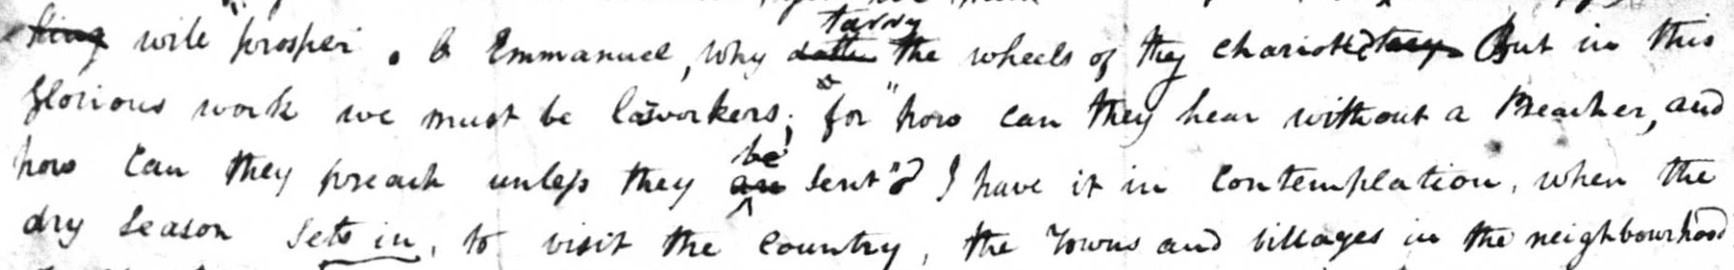 ~~king~~ will "prosper. O Emmanuel, why tarry the wheels of thy chariot? But in this
glorious work we must be co-workers; for "how can they hear without a Preacher, and
how can they preach unless they be sent"? I have it in contemplation, when the
dry season sets in, to visit the country, the Towns and villages in the neighbourhood